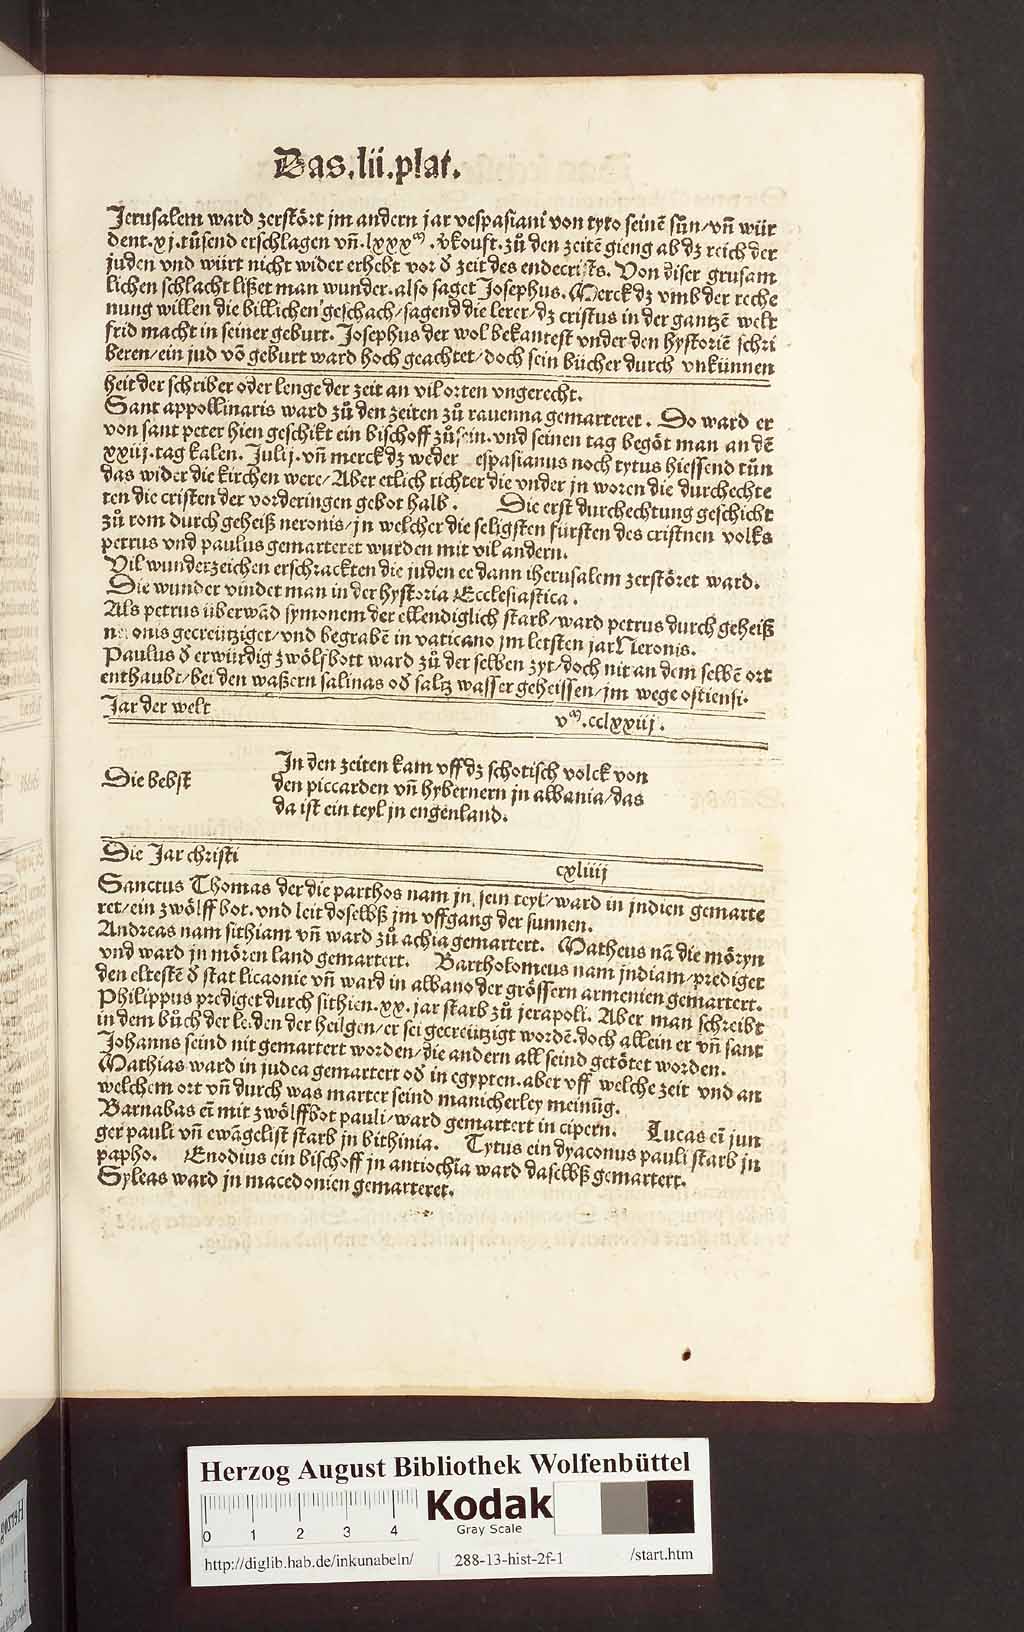 Das.lii.plat.
Jerusalem ward zerstört jm andern jar vespasiani von tyto seinē sūn/vn̄ wür
dent.xj.tůsend erschlagen vn̄.lxxxᵐ.vkouft.zů den zeitē gieng ab dz reich der
juden vnd würt nicht wider erhebt vor ď zeit des endecrists. Von diser grusam
lichen schlacht lißet man wunder.also saget Josephus. Merck dz vmb der reche
nung willen die billichen geschach/sagend die lerer/dz cristus in der gantzē welt
frid macht in seiner geburt. Josephus der wol bekantest vnder den hystoriē schri
beren/ein jud vō geburt ward hoch geachtet/doch sein bücher durch vnkünnen
heit der schriber oder lenge der zeit an vil orten vngerecht.
Sant appollinaris ward zů den zeiten zů rauenna gemarteret. Do ward er
von sant peter hien geschikt ein bischoff zů sein.vnd seinen tag begöt man an dē
xxiij.tag kalen. Julij.vn̄ merck dz weder espasianus noch tytus hiessend tůn
das wider die kirchen were/Aber etlich richter die vnder jn woren die durchechte
ten die cristen der vorderingen gebot halb. Die erst durchechtung geschicht
zů rom durch geheiß neronis/jn welcher die seligsten fürsten des cristnen volks
petrus vnd paulus gemarteret wurden mit vil andern.
Vil wunderzeichen erschrackten die juden ee dann iherusalem zerstöret ward.
Die wunder vindet man in der hystoria Ecclesiastica.
Als petrus überwād symonem der ellendiglich starb/ward petrus durch geheiß
neronis gecreütziget/vnd begrabē in vaticano jm letsten jar Neronis.
Paulus ď erwürdig zwölfbott ward zů der selben zyt/doch nit an dem selbē ort
enthaubt/bei den waßern salinas oď saltz wasser geheissen/jm wege ostiensi.
Jar der welt vᵐ.cclxxiij.
Die bebst
In den zeiten kam vff dz schotisch volck von
den piccarden vn̄ hybernern jn albania/das
da ist ein teyl jn engenland.
Die Jar christi cxliiij
Sanctus Thomas der die parthos nam jn sein teyl/ward in jndien gemarte
ret/ein zwölff bot.vnd leit doselbß jm vffgang der sunnen.
Andreas nam sithiam vn̄ ward zů achia gemartert. Matheus nā die möryn
vnd ward jn mören land gemartert. Bartholomeus nam jndiam/prediget
den eltestē ď stat licaonie vn̄ ward in albano der grössern armenien gemartert.
Philippus prediget durch sithien.xx.jar starb zů jerapoli. Aber man schreibt
in dem bůch der leiden der heilgen/er sei gecreützigt wordē.doch allein er vn̄ sant
Johanns seind nit gemartert worden/die andern all seind getötet worden.
Mathias ward in judea gemartert oď in egypten.aber vff welche zeit vnd an
welchem ort vn̄ durch was marter seind manicherley meinūg.
Barnabas eī mit zwölffbot pauli/ward gemartert in cipern. Lucas eī jun
ger pauli vn̄ ewāgelist starb jn bithinia. Tytus ein dyaconus pauli starb jn
papho. Enodius ein bischoff jn antiochia ward daselbß gemartert.
Syleas ward jn macedonien gemarteret.
Herzog August Bibliothek Wolfenbüttel
0 1 2 3 4
Kodak
Gray Scale
http://diglib.hab.de/inkunabeln/ 288-13-hist-2f-1 /start.htm